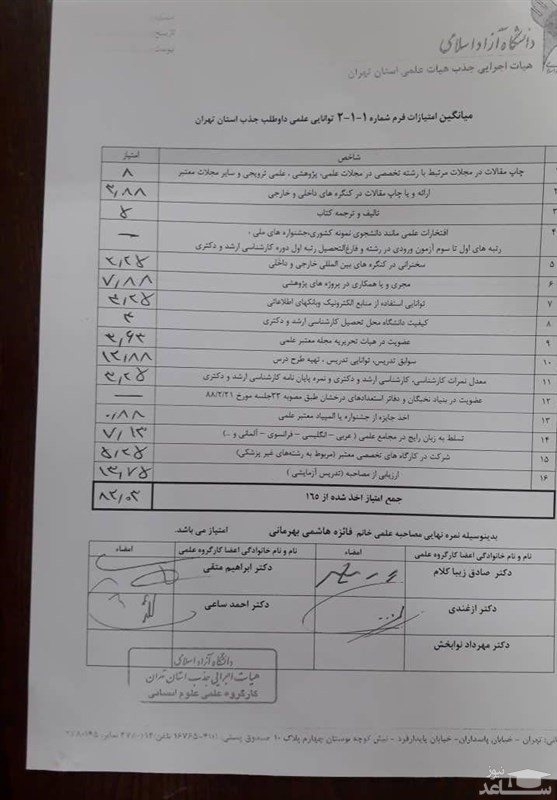 دانشگاه آزاد اسلامی
هیات اجرایی جذب هیات علمی استان تهران
میانگین امتیازات فرم شماره ۱-۱-۲ توانایی علمی داوطلب جذب استان تهران
شاخص امتیاز
چاپ مقالات در مجلات مرتبط با رشته تخصصی در مجلات علمی، پژوهشی ، علمی ترویجی و سایر مجلات معتبر ۸
ارائه و یا چاپ مقالات در کنگره های داخلی و خارجی ۳,۸۸
۳ تالیف و ترجمه کتاب ۵
۴ افتخارات علمی مانند دانشجوی نمونه کشوری،جشنواره های ملی ، —
رتبه های اول تا سوم آزمون ورودی در رشته و فارغ‌التحصیل رتبه اول دوره کارشناسی ارشد و دکتری
۵ سخنرانی در کنگره های بین المللی خارجی و داخلی ۲,۲۵
۶ مجری و یا همکاری در پروژه های پژوهشی ۷,۸۸
۷ توانایی استفاده از منابع الکترونیک وبانکهای اطلاعاتی ۳,۲۵
۸ کیفیت دانشگاه محل تحصیل کارشناسی ارشد و دکتری ۳
۹ عضویت در هیات تحریریه مجله معتبر علمی ۳,۶۳
۱۰ سوابق تدریس، توانایی تدریس ، تهیه طرح درس ۱۲,۸۸
۱۱ معدل نمرات کارشناسی، کارشناسی ارشد و دکتری و نمره پایان نامه کارشناسی ارشد و دکتری ۳,۲۵
۱۲ عضویت در بنیاد نخبگان و دفاتر استعدادهای درخشان طبق مصوبه ۲۳جلسه مورخ ۸۸/۲/۲۱ —
۱۳ اخذ جایزه از جشنواره یا المپیاد معتبر علمی ۰,۸۸
۱۴ تسلط به زبان رایج در مجامع علمی ( عربی – انگلیسی – فرانسوی – آلمانی و ..) ۷,۱۳
۱۵ شرکت در کارگاه های تخصصی معتبر (مربوط به رشته‌های غیر پزشکی) ۵,۲۵
۱۶ ارزیابی از مصاحبه (تدریس آزمایشی ) ۱۳,۷۵
جمع امتیاز اخذ شده از ۱۶۵ ۸۲,۰۳
بدینوسیله نمره نهایی مصاحبه علمی خانم فائزه هاشمی بهرمانی امتیاز می باشد.
نام و نام خانوادگی اعضا کارگروه علمی امضاء نام و نام خانوادگی اعضا کارگروه علمی امضاء
دکتر صادق زیبا کلام دکتر ابراهیم متقی
دکتر ازغندی دکتر احمد ساعی
دکتر مهرداد نوابخش
دانشگاه آزاد اسلامی
هیات اجرایی جذب استان تهران
کارگروه علمی علوم انسانی
تهران - خیابان پاسداران- خیابان پایدارفرد – نبش کوچه بوستان چهارم پلاک ۱۰ صندوق پستی:
ساعد نیوز